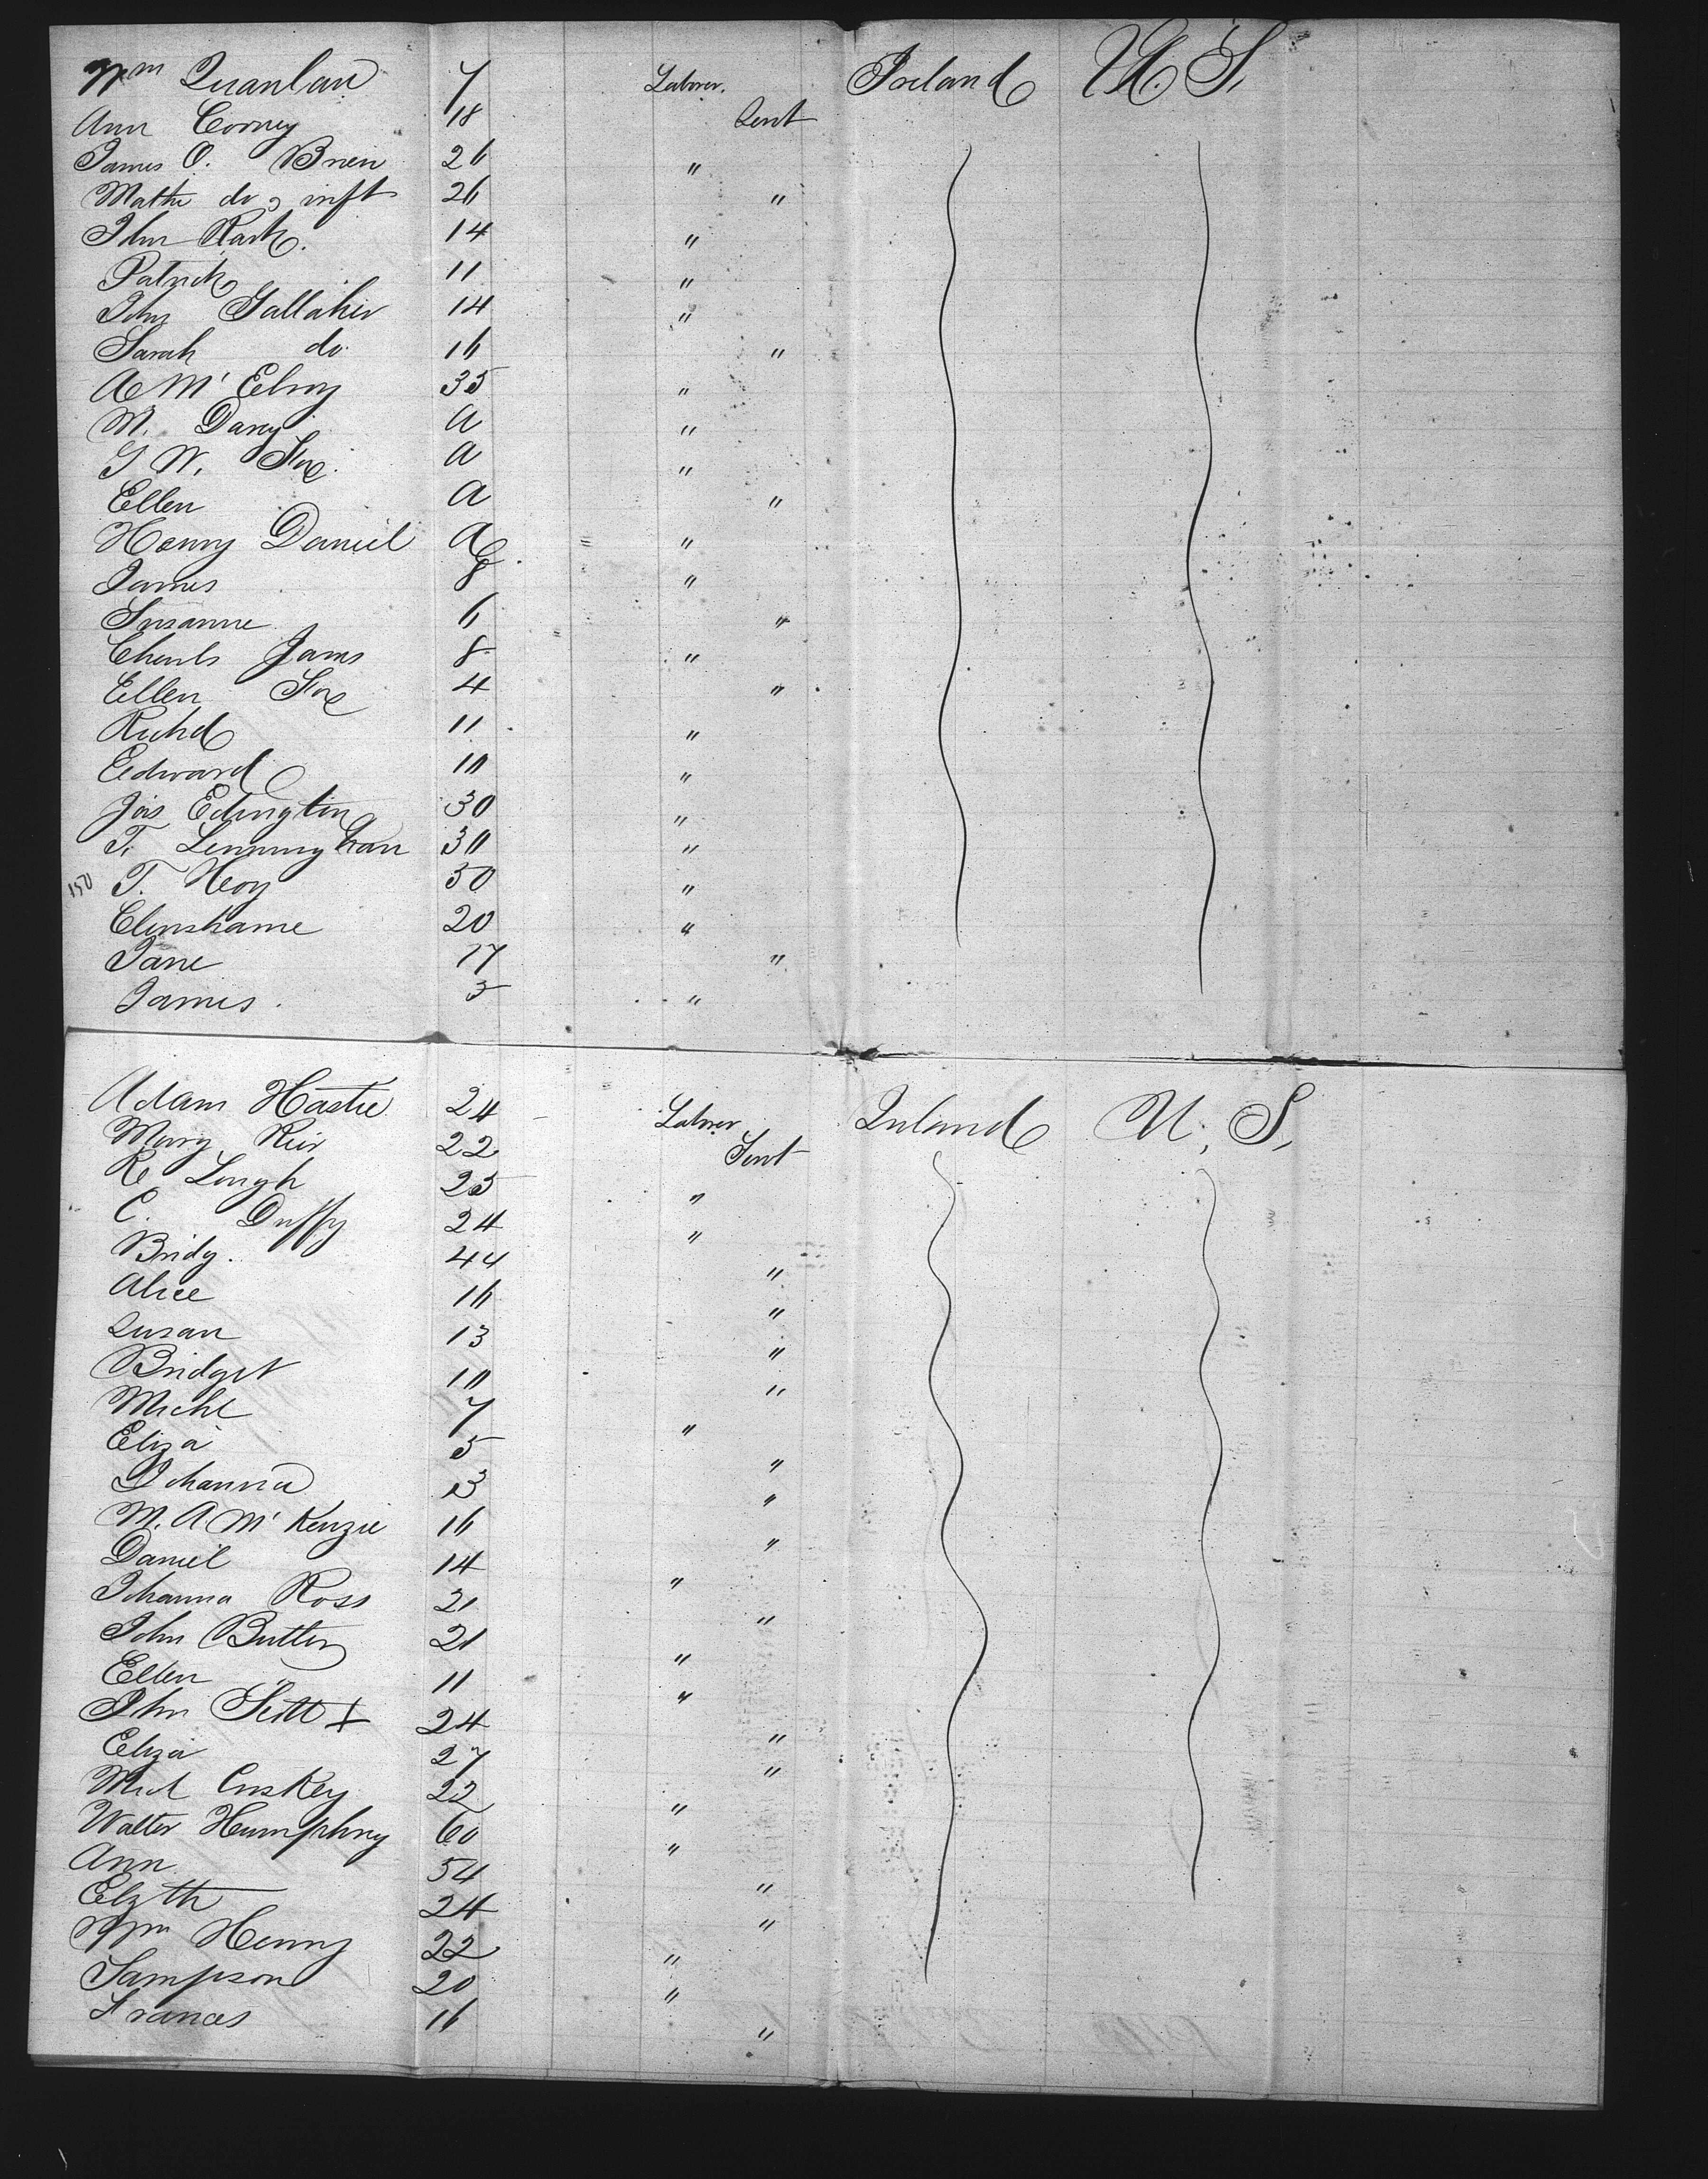 Wm Quanlan 7 Labrer. Ireland U.S.
Ann Corney 18 Sevt
James O. Brien 26 "
Mathw do & inft 26 "
John Rark. 14 "
Patrick 11 "
John Gallaher 14 "
Sarah do 16 "
A McElroy 35 "
M. Darcy A "
G W. Fox A "
Ellen A "
Henry Daniel A "
James 8 "
Susanne 6 "
Charls Jams 8 "
Ellen Fox 4 "
Richd 11 "
Edward 10 "
Jas Edington 30 "
T. Lenninghan 30 "
150 T. Hoy 50 "
20 "
Jane 17 "
James. 3 "
Adam Hastie 24 Labrer Ireland U.S.
Mary Reir 22 Sevt
R Lough 25 "
C. Duffy 24 "
Bridg. 44 "
Alice 16 "
Susan 13 "
Bridget 10 "
Michl 7 "
Eliza 5 "
Johanna 3 "
M. A McKenzie 16 "
Daniel 14 "
Johanna Ross 21 "
John Butler 21 "
Ellen 11 "
John Scott X 24 "
Eliza 27 "
Mich Cuskey 22 "
Walter Humphry 60 "
Ann 54 "
Elzth 24 "
Wm Henry 22 "
Sampson 20 "
Frances 16 "